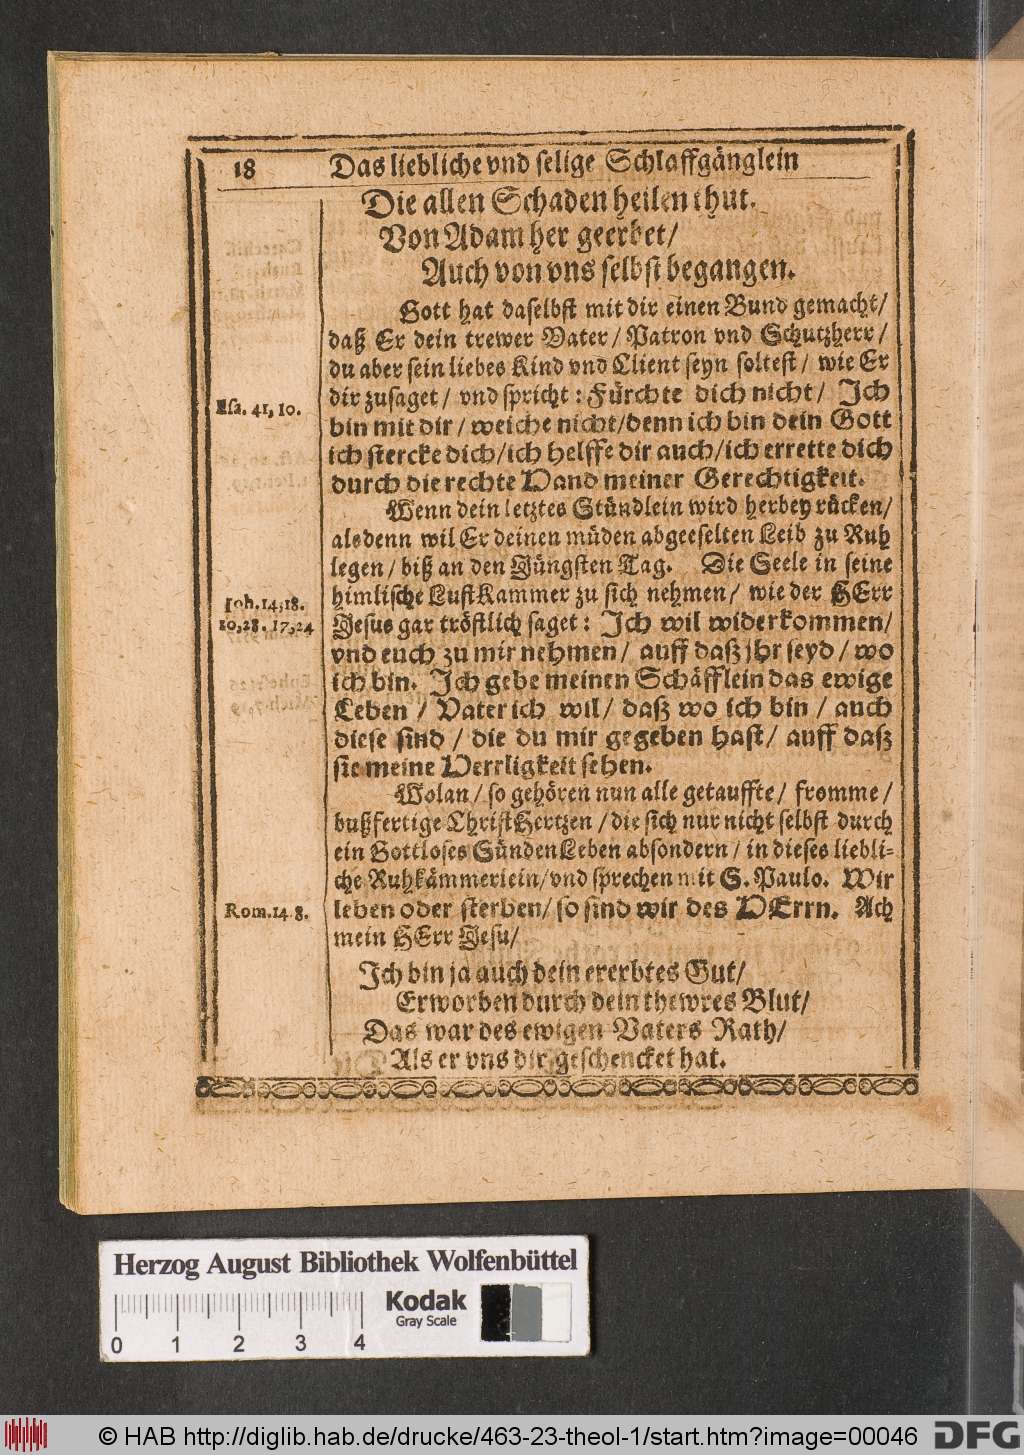 18 Das liebliche vnd selige Schlaffgänglein
Die allen Schaden heilen thut.
Von Adam her geerbet/
Auch von vns selbst begangen.
Gott hat daselbst mit dir einen Bund gemacht/
daß Er dein trewer Vater/ Patron vnd Schutzherr/
du aber sein liebes Kind vnd Client seyn soltest/ wie Er
dir zusaget/ vnd spricht: Fürchte dich nicht/ Ich
Esa. 41, 10.
bin mit dir/ weiche nicht/ denn ich bin dein Gott
ich stercke dich/ ich helffe dir auch/ ich errette dich
durch die rechte Hand meiner Gerechtigkeit.
Wenn dein letztes Stündlein wird herbey rücken/
alsdenn wil Er deinen müden abgeeselten Leib zu Ruh
legen/ biß an den Jüngsten Tag. Die Seele in seine
himlische LustKammer zu sich nehmen/ wie der HErr
Joh. 14, 18.
10, 28. 17, 24
Jesus gar tröstlich saget: Ich wil widerkommen/
vnd euch zu mir nehmen/ auff daß jhr seyd/ wo
ich bin. Ich gebe meinen Schäfflein das ewige
Leben/ Vater ich wil/ daß wo ich bin/ auch
diese sind/ die du mir gegeben hast/ auff daß
sie meine Herrligkeit sehen.
Wolan/ so gehören nun alle getauffte/ fromme/
bußfertige ChristHertzen/ die sich nur nicht selbst durch
ein Gottloses SündenLeben absondern/ in dieses liebli-
che Ruhkämmerlein/ vnd sprechen mit S. Paulo. Wir
Rom. 14 8.
leben oder sterben/ so sind wir des HErrn. Ach
mein HErr Jesu/
Ich bin ja auch dein ererbtes Gut/
Erworben durch dein thewres Blut/
Das war des ewigen Vaters Rath/
Als er vns dir geschencket hat.
Herzog August Bibliothek Wolfenbüttel
Kodak
Gray Scale
0 1 2 3 4
© HAB http://diglib.hab.de/drucke/463-23-theol-1/start.htm?image=00046
DFG